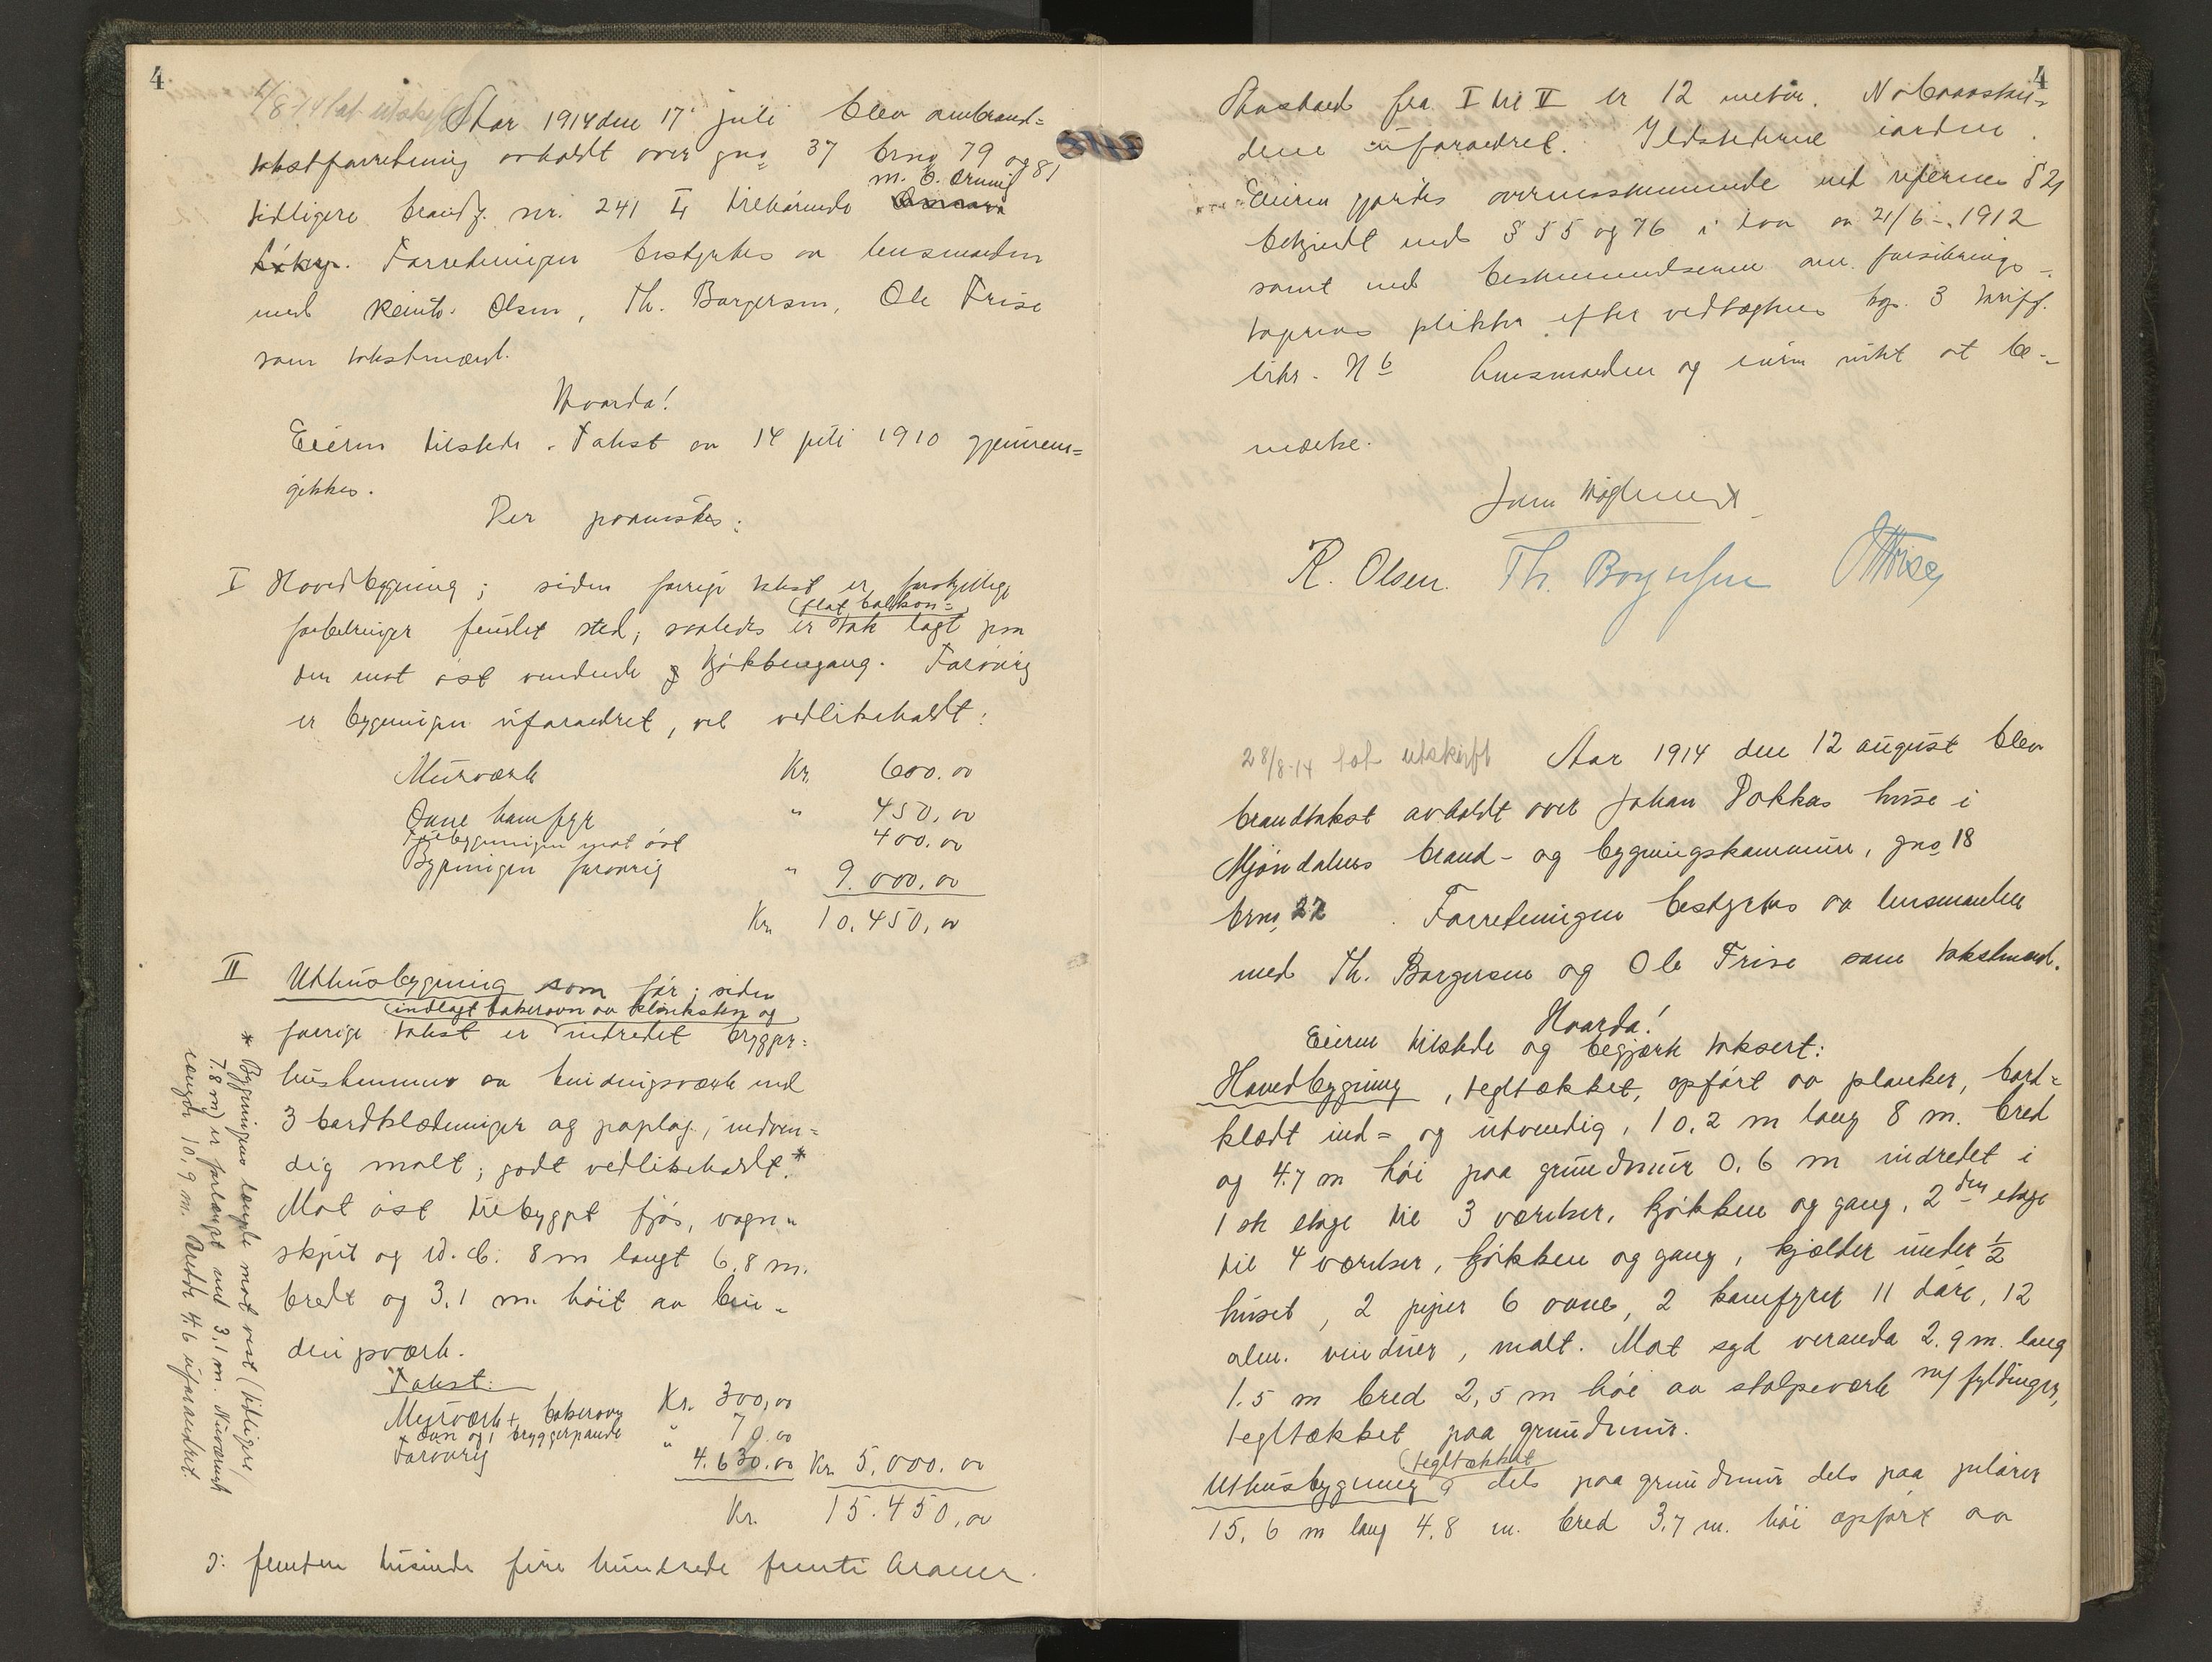 4
/8-14 tat utskr.
Aar 1914 den 17 juli blev ombrand=
takstforretning avholdt over gno 37 brno 79 og 81
m. O. Arunig
tidligere brandf. nr. 241 I tilhørende
Forretningen bestyrtes av lensmanden
med Reinh. Olsen, Th. Borgersen, Ole Frise
som takstmænd.
Hvorda!
Eieren tilstede. Takst av 14 juli 1910 gjennem=
gikkes.
Der paavistes:
I Hovedbygning; siden forrige takst er forskjellige
(flat balkon=)
forbedringer fundet sted; saaledes er tak lagt paa
den mot øst vendende kjøkkengang. Forøvrig
er bygningen uforandret, vel vedlikeholdt:
Murværk Kr. 600.00
Ovne komfyr " 450,00
Tilbygningen mot øst 400.00
Bygningen forøvrig " 9.000.00
Kr. 10.450,00
II Uthusbygning som før; siden
(indlagt bakerovn av klinksten og
forrige takst er indredet brygger=
huskummer av bindingsværk med
3 bordklædninger og paplag, indven=
dig malt; godt vedlikeholdt.*
Mot øst tilbygget fjøs, vogn=
skjul og w.c. 8 m langt 6.8 m.
bredt og 3.1 m. høit av bin=
dingsværk.
Takst:
Murværk + bakerovn Kr. 300,00
" ovn og 1 bryggerpande " 70.00
Forøvrig 4.630.00 Kr. 5.000.00
Kr. 15.450,00
ɔ: femten tusinde fire hundrede femti kroner.
* Bygningens længde mot vest (tidligere
7.8 m) er forlænget med 3.1 m. Nuværende
længde 10.9 m. Bredde 4.6 uforandret.
4
Avstand fra I til II er 12 meter. Naboavstan=
dene uforandret. Ildstederne iorden.
Eieren gjordes overensstemmende med reglernes § 21
bekjendt med § 55 og 76 i lov av 21/6-1912
samt med bestemmelserne om forsikrings=
tagerens plikter efter vedtægtens kap. 3 tariff.
litr. H b Lensmanden og eieren intet at be=
merke.
R. Olsen. Th. Borgersen O Frise
28/8-14 tat utskrift Aar 1914 den 12 august blev
brandtakst avholdt over Johan Pokkas huse i
Mjøndalens brand- og bygningskommune, gno 18
brno, 27. Forretningen bestyrtes av lensmanden
med Th. Borgersen og Ole Frise som takstmænd.
Hvorda!
Eieren tilstede og begjærte taksert:
Hovedbygning, tegltækket, opført av planker, bord=
klædt ind= og utvendig, 10,2 m lang 8 m. bred
og 4.7 m høi paa grundmur 0.6 m indredet i
1ste etage til 3 værelser, kjøkken og gang, 2den etage
til 4 værelser, kjøkken og gang, kjælder under ½
huset, 2 piper 6 ovne, 2 komfyrer 11 døre, 12
alm. vinduer, malt. Mot syd veranda 2.9 m. lang
1.5 m bred 2,5 m høi av stolpeværk m/ fyldinger,
tegltækket paa grundmur.
(tegltækket
Uthusbygning dels paa grundmur dels paa pilarer
15,6 m lang 4,8 m. bred 3,7 m. høi opført av